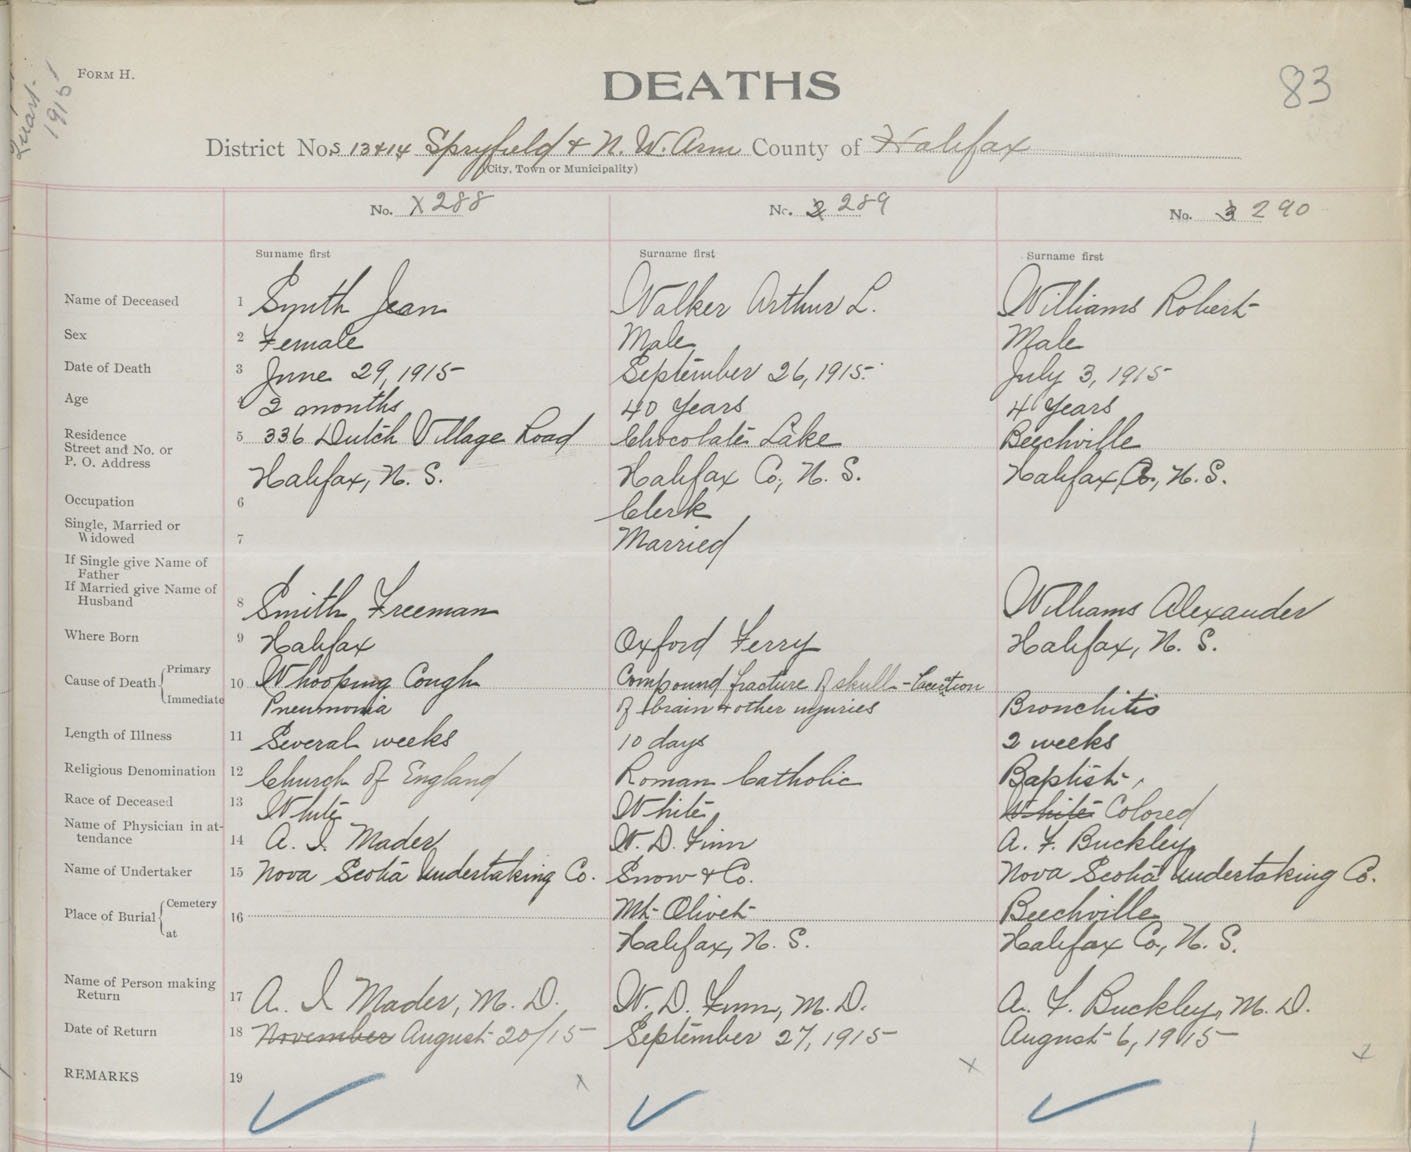 Quart. 1915
FORM H.
DEATHS
83
District No.s 13+14 Spryfield + N. W. Arm County of Halifax
(City, Town or Municipality)
No. 1 288
No. 2 289
No. 3 290
Surname first
Surname first
Surname first
Name of Deceased 1 Smith Jean Walker Arthur L. Williams Robert
Sex 2 Female Male Male
Date of Death 3 June 29, 1915 September 26, 1915. July 3, 1915
Age 4 2 months 40 Years 4 Years
Residence Street and No. or P. O. Address 5 336 Dutch Village Road Chocolate Lake Beechville
Halifax, N. S. Halifax Co., N. S. Halifax Co., N. S.
Occupation 6 Clerk
Single, Married or Widowed 7 Married
If Single give Name of Father
If Married give Name of Husband 8 Smith Freeman Williams Alexander
Where Born 9 Halifax Oxford Ferry Halifax, N. S.
Cause of Death Primary 10 Whooping Cough Compound fracture of skull -
Immediate Pneumonia of brain + other injuries Bronchitis
Length of Illness 11 Several weeks 10 days 2 weeks
Religious Denomination 12 Church of England Roman Catholic Baptist
Race of Deceased 13 White White White Colored
Name of Physician in attendance 14 A. I. Mader W. D. Finn A. F. Buckley
Name of Undertaker 15 Nova Scotia Undertaking Co. Snow + Co. Nova Scotia Undertaking Co.
Place of Burial Cemetery 16 Mt. Olivet Beechville
at Halifax, N. S. Halifax Co., N. S.
Name of Person making Return 17 A. I Mader, M. D. W. D. Finn, M. D. A. F. Buckley, M. D.
Date of Return 18 November August 20/15 September 27, 1915 August 6, 1915
REMARKS 19
x x x